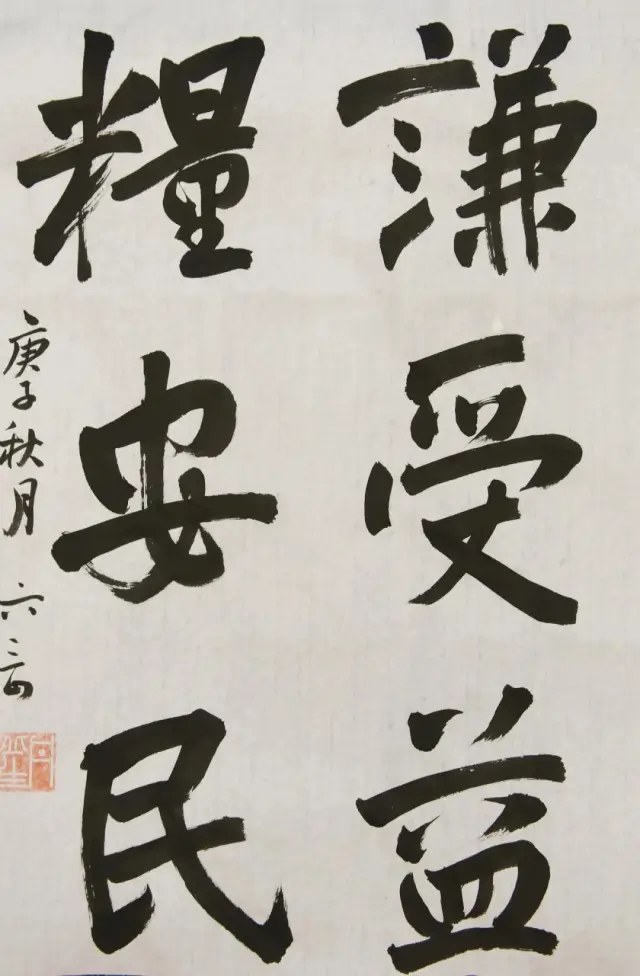 謙受益
糧安民
庚子秋月